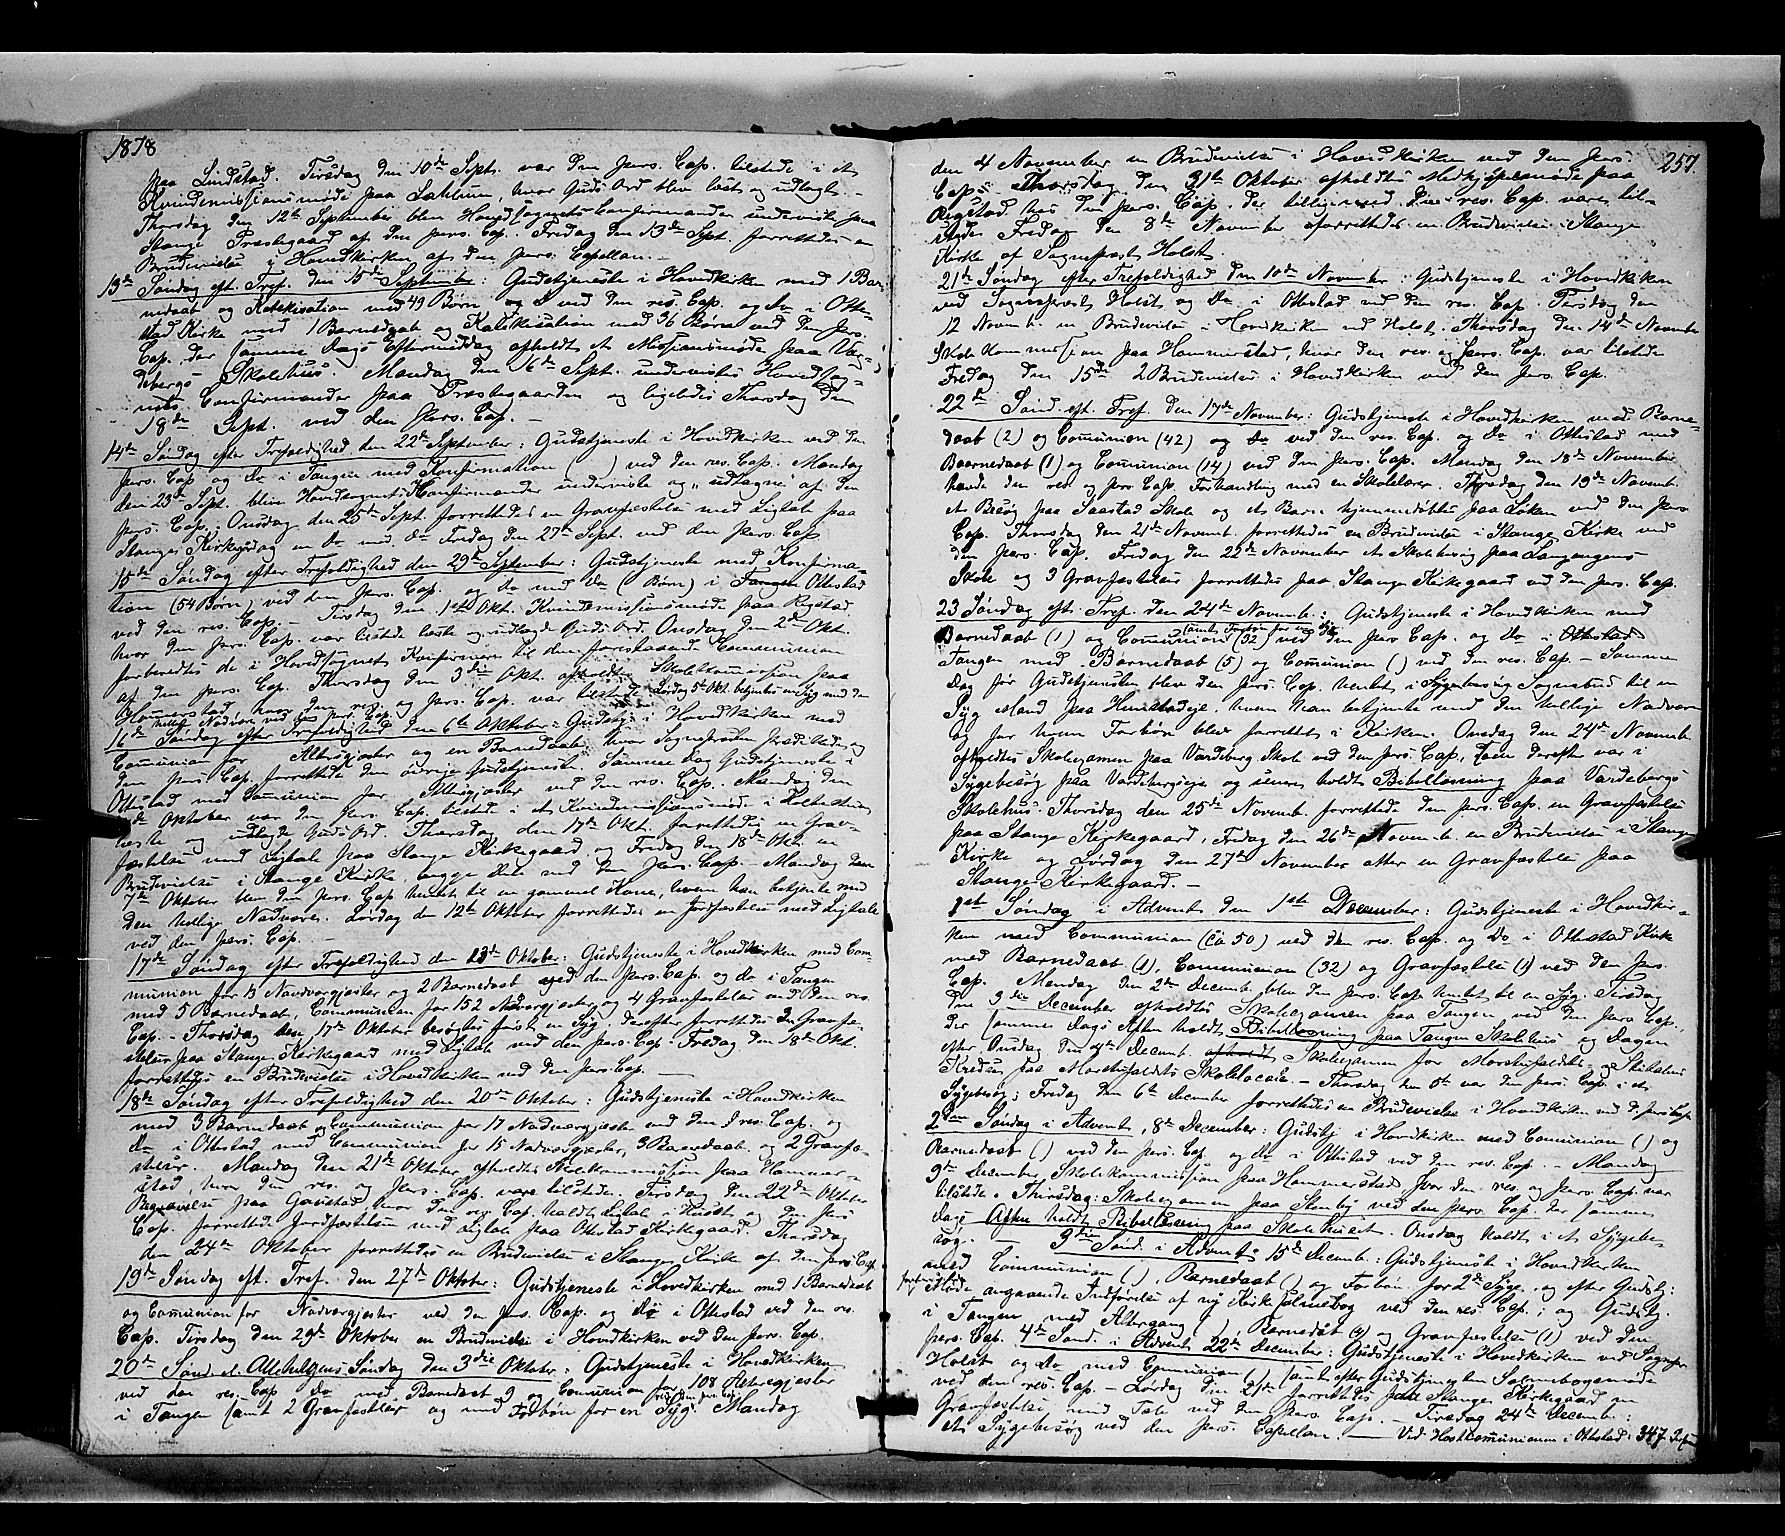 1878
paa Lindstad. Tirsdag den 10de Sept. var den pers. Cap. tilstede i et
Kvindemissionsmøde paa, hvor Guds Ord blev læst og udlagt. –
Thorsdag den 12te September blev Hovedsognets Confirmander undervist paa
Stange Præstegaard af den pers. Cap. Fredag den 13de Sept. forrettedes en
Brudevielse i Hovedkirken af den pers. Capellan. –
13de Søndag eft. Tref. den 15de September: Gudstjeneste i Hovedkirken med 1 Bar-
nedaab og Katekisation med 49 Børn, ved den res. Cap. og do i Otte-
stad Kirke med 1 Barnedaab og Katekisation med 36 Børn ved den pers.
Cap. der samme Dags Eftermiddag afholdt et Missionsmøde paa Var-
debergs Skolehus. Mandag den 16de Sept. undervistes Hovedsog-
nets Confirmander paa Præstegaarden og ligeledes Thorsdag den
18de Sept. ved den pers. Cap.
14de Søndag efter Trefoldighed den 22de September: Gudstjeneste i Hovedkirken ved den
pers. Cap. og do i Tangen med Konfirmation ( ) ved den res. Cap. Mandag
den 23de Sept. blev Hovedsognets Konfirmander underviste og "udtagne" af den
pers. Cap. Onsdag den 25de Sept. forrettedes en Gravfæstelse med Ligtale paa
Stange Kirkegård og en do med do Fredag den 27de Sept. ved den pers. Cap.
15de Søndag efter Trefoldighed den 29de September: Gudstjeneste med Konfirma-
tion (54 Børn) ved den pers. Cap. og do med do ( Børn) i Tangen Ottestad
ved den res. Cap. – Tirsdag den 1ste Okt. Kvindemissionsmøde paa Rigstad
hvor den pers. Cap. var tilstede læste og udlagde Guds Ord. Onsdag den 2den Okt.
forberedtes de i Hovedsognet Konfirmerte til den forestaaende Communion
af den pers. Cap. Thorsdag den 3die Okt. afholdtes Skolekommission paa
Hammerstad, hvor den res. og pers. Cap. var tilstede. Lørdag 5te Okt. betjentes en Syg med den
hellige Nadvere ved den pers. Cap.
16de Søndag efter Trefoldighed den 6te Oktober: Gudstj. i Hovedkirken med
Communion for Altergjester og en Barnedaab, hvor Sognepræsten prædikede, og
den pers. Cap. forrettede den øvrige Gudstjeneste. Samme Dag Gudstjeneste i
Ottestad med Communion for Altergjester ved den res. Cap. Mandag den
Oktober var den pers. Cap. tilstede i et Kvindemissionsmøde i
læste og udlagde Guds Ord. Thorsdag den 17de Okt. forrettedes en Grav-
fæstelse med Ligtale paa Stange Kirkegaard og Fredag den 18de Okt. en
Brudevielse i Stange Kirke, begge Dele ved den pers. Cap. – Mandag den
7de Oktober blev den pers. Cap. hentet til en gammel Kone, hvem han betjente med
den hellige Nadvere. Lørdag den 12te Oktober forrettedes en Jordfæstelse med Ligtale
ved den pers. Cap.
17de Søndag efter Trefoldighed den 13de Oktober: Gudstjeneste i Hovedkirken med Com-
munion for 13 Nadvergjester og 2 Barnedaab ved den pers. Cap. og do i Tangen
med 5 Barnedaab, Communion for 152 Nadvergjester og 4 Gravfæstelser ved den res.
Cap. – Thorsdag den 17de Oktober besøgtes først en Syg, derefter forrettedes en Gravfæ-
stelse paa Stange Kirkegaard med Ligtale ved den pers. Cap. Fredag den 18de Okt.
forrettedes en Brudevielse i Hovedkirken ved den pers. Cap. –
18de Søndag efter Trefoldighed den 20de Oktober: Gudstjeneste i Hovedkirken
med 3 Barnedaab og Communion for 17 Nadvergjester ved den res. Cap. og
do i Ottestad med Communion for 15 Nadvergjester, 3 Barnedaab og 2 Gravfæ-
stelser. Mandag den 21de Oktober afholdtes Skolekommission paa Hammer-
stad, hvor den res. og pers. Cap. vare tilstede. Tirsdag den 22de Oktober
Begravelse paa Gaustad, hvor den res. Cap. holdt Ligtale i Huset og den pers.
Cap. forrettede Jordfæstelsen med Ligtale paa Ottestad Kirkegaard. Thorsdag
den 24de Oktober forrettedes en Brudevielse i Stange Kirke af den pers. Cap.
19de Søndag eft. Tref. den 27de Oktober: Gudstjeneste i Hovedkirken med 1 Barnedaab
og Communion for Nadvergjester ved den pers. Cap. og do i Ottestad ved den res.
Cap. Tirsdag den 29de Oktober en Brudevielse i Hovedkirken ved den pers. Cap.
20de Sønd. el. Allehelgens Søndag den 3die Oktober: Gudstjeneste i Hovedkirken
ved den res. Cap. do med Barnedaab 9 og Communion for 108 Altergjester
i Tangen samt 2 Gravfæstelser og med Forbøn for en Syg. Mandag
257.
den 4 November en Brudevielse i Hovedkirken ved den pers.
Cap. – Thorsdag den 31te Oktober afholdtes paa
Rigstad hos den pers. Cap. der tilligemed den res. Cap. vare til-
stede. Fredag den 8de November forrettedes en Brudevielse i Stange
Kirke af Sognepræst Holst.
21de Søndag efter Trefoldighed den 10de November: Gudstjeneste i Hovedkirken
ved Sognepræst Holst og do i Ottestad ved den res. Cap. Tirsdag den
12 Novemb. en Brudevielse i Hovedkirken ved Holst. Thorsdag den 14de November
Skolekommission paa Hammerstad, hvor den res. og pers. Cap. var tilstede
Fredag den 15de 2 Brudevielser i Hovedkirken ved den pers. Cap.
22de Sønd. eft. Tref. den 17de November: Gudstjeneste i Hovedkirken med Barne-
daab (2) og Communion (42) og do ved den res. Cap. og do i Ottestad med
Baarnedaab (1) og Communion (14) ved den pers. Cap. Mandag den 18de November
havde den res. og pers. Cap. Forhandling med en Skolelærer. Tirsdag den 19de Novemb.
et Besøg paa Saastad Skole og et Barn hjemmedøbtes paa Løken ved den pers.
Cap. Thorsdag den 21de Novemb. forrettedes en Brudevielse i Stange Kirke ved
den pers. Cap. Fredag den 22de November et Skolebesøg paa
Skole og 3 Gravfæstelser forrettedes paa Stange Kirkegaard ved den pers. Cap.
23 Søndag eft. Tref. den 24de Novemb.: Gudstjeneste i Hovedkirken med
Barnedaab (1) og Communion (32) (samt Forbøn for en Syg) ved den pers. Cap. og do i Ottestad
Tangen med Barnedaab (5) og Communion ( ) ved den res. Cap. – Samme
Dag før Gudstjenesten blev den pers. Cap. hentet i Sygebesøg Sognebud til en
Syg Mand paa, hvem han betjente med den hellige Nadvere
og for hvem Forbøn blev forrettet i Kirken. Onsdag den 24de Novemb.
afholdtes Skoleexamen paa Vardeberg Skole ved den pers. Cap., som derefter var i
Sygebesøg paa Vardebergseje og senere holdt Bibellæsning paa Vardebergs
Skolehus. Thorsdag den 25de Novemb. forrettede den pers. Cap. en Gravfæstelse
paa Stange Kirkegaard, Fredag den 26de Novemb. en Brudevielse i Stange
Kirke og Lørdag den 27de November atter en Gravfæstelse paa
Stange Kirkegaard. –
1ste Søndag i Advent den 1ste December: Gudstjeneste i Hovedkir-
ken med Communion (ca 50) ved den res. Cap. og do i Ottestad Kirke
med Barnedaab (1), Communion (32) og Gravfæstelse (1) ved den pers.
Cap. Mandag den 2den Decemb. blev den pers. Cap. hentet til en Syg. Tirsdag
den 3die December afholdtes Skoleexamen paa Tangen ved den pers. Cap.,
der samme Dags Aften holdt Bibellæsning paa Tangen Skolehus og Dagen
efter Onsdag den 4de Decemb. afholdt Skoleexamen for Morskufaldets- og
Kredse paa Morskufaldets Skolelocale. – Thorsdag den 5te var den pers. Cap. i et
Sygebesøg; Fredag den 6te December forrettedes en Brudevielse i Hovedkirken ved d. pers. Cap.
2den Søndag i Advent, 8de December: Gudstj. i Hovedkirken med Communion ( ) og
Barnedaab ( ) ved den pers. Cap. og do i Ottestad ved den res. Cap. – Mandag
9de December Skolekommission paa Hammerstad hvor den res. og pers. Cap. var
tilstede. Thirsdag: Skoleexamen paa Stenby ved den pers. Cap. der samme
Dags Aften holdt Bibellæsning paa Skolehuset. Onsdag holdt i et Sygebe-
søg. – 3die Sønd. i Advent 15de Decemb.: Gudstjeneste i Hovedkirken
med Communion ( ), Barnedaab ( ) og Forbøn for 2de Syge, og efter Gudstj:
Møde angaaende Indførelse af ny Kirkesalmebog ved den res. Cap.; og Gudstj.
i Tangen med Altergang ( ), Barnedåb (4) og Gravfæstelse (1) ved den
pers. Cap. 4de Sønd. i Advent 22de December: Gudstjeneste i Hovedkirken ved Sognepr.
Holst og do med Communion samt efter Gudstjenesten Salmebogsmøde
ved den res. Cap. – Lørdag den 21de forrettedes paa Stange Kirkegaard en
Gravfæstelse med Tale ved den pers. Cap. – Tirsdag 24de Decemb.:
et Sygebesøg ved den pers. Capellan. – Ved Høstkommunionen i Ottestad: 347